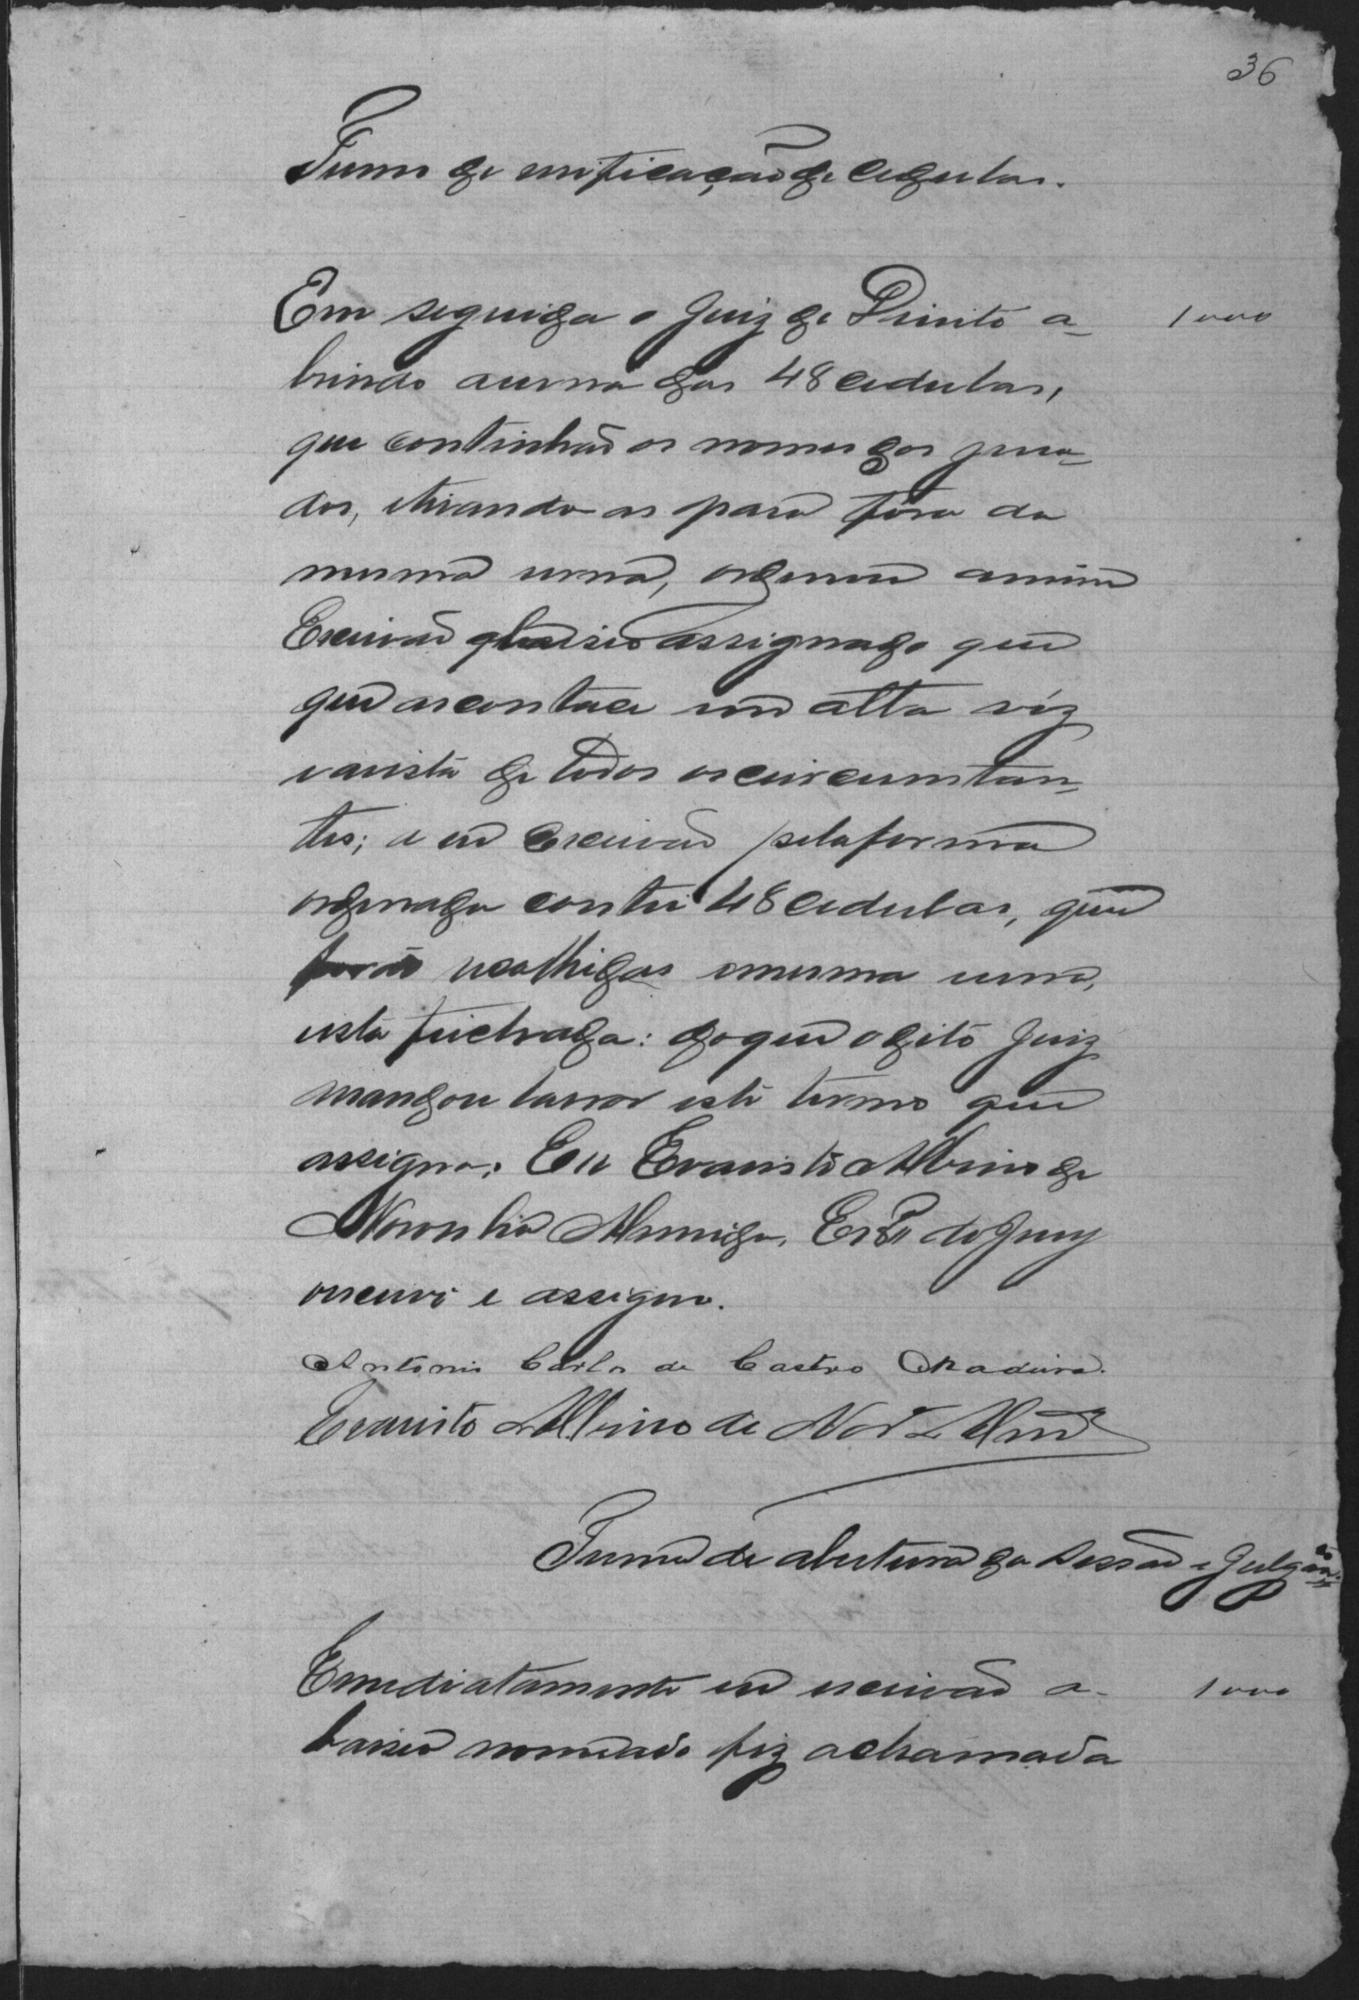 36
Termo de verificação de cedulas.
Em seguida o Juiz de Direito a- 1000
brindo a urna das 48 cedulas,
que continhão os nomes dos jura-
dos, e tirando as para fóra da
mesma urna, ordenou a mim
Escrivão abaixo assignado que
que as contace em alta vóz
e a vista de todos os circumstan-
tes; e eu Escrivão pela forma
ordenada contei 48 cedulas, que
forão recolhidas a mesma urna,
esta feichada: do que o dito Juiz
mandou lavrar este termo que
assigna. Eu Evaristo Albino de
Noronha Almeida, Escrm do Jury
escrevi e assigno.
Antonio Carlos de Castro Madeira.
Evaristo Albino de Nor.ª Almd.ª
Termo de abertura da Sessão e Julgam.to
Emediatamente eu escrivão a- 1000
baixo nomeado fiz a chamada